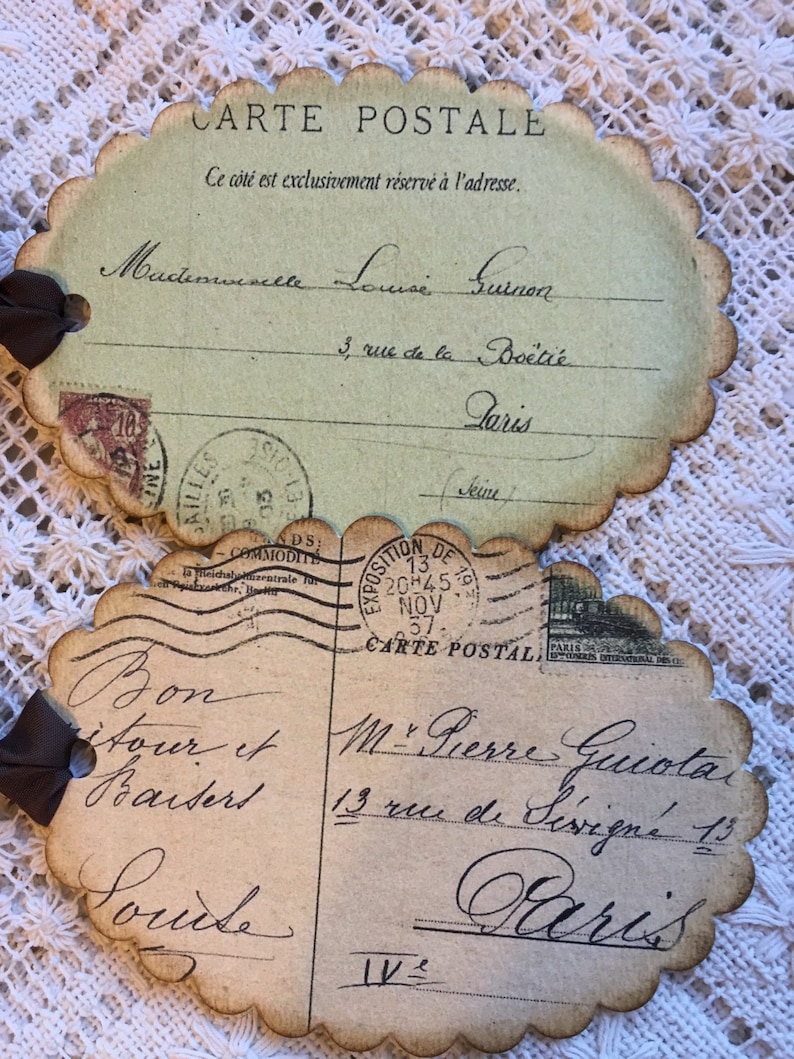 CARTE POSTALE
Ce côté est exclusivement réservé à l'adresse.
Mademoiselle Louise Guinon
3, rue de la Boëtie
Paris
(Seine)
10
AILLES
3510-13
NDS:
- COMMODITÉ
la Reichsbahnzentrale für
en Reiseverkehr, Berlin
EXPOSITION DE 19
13
20H45
NOV
37
CARTE POSTAL
PARIS
CONGRÈS INTERNATIONAL DES
Bon
tour et
Baisers
Louise
Mr Pierre Guiota
13 rue de Sévigné 13
Paris
IVe